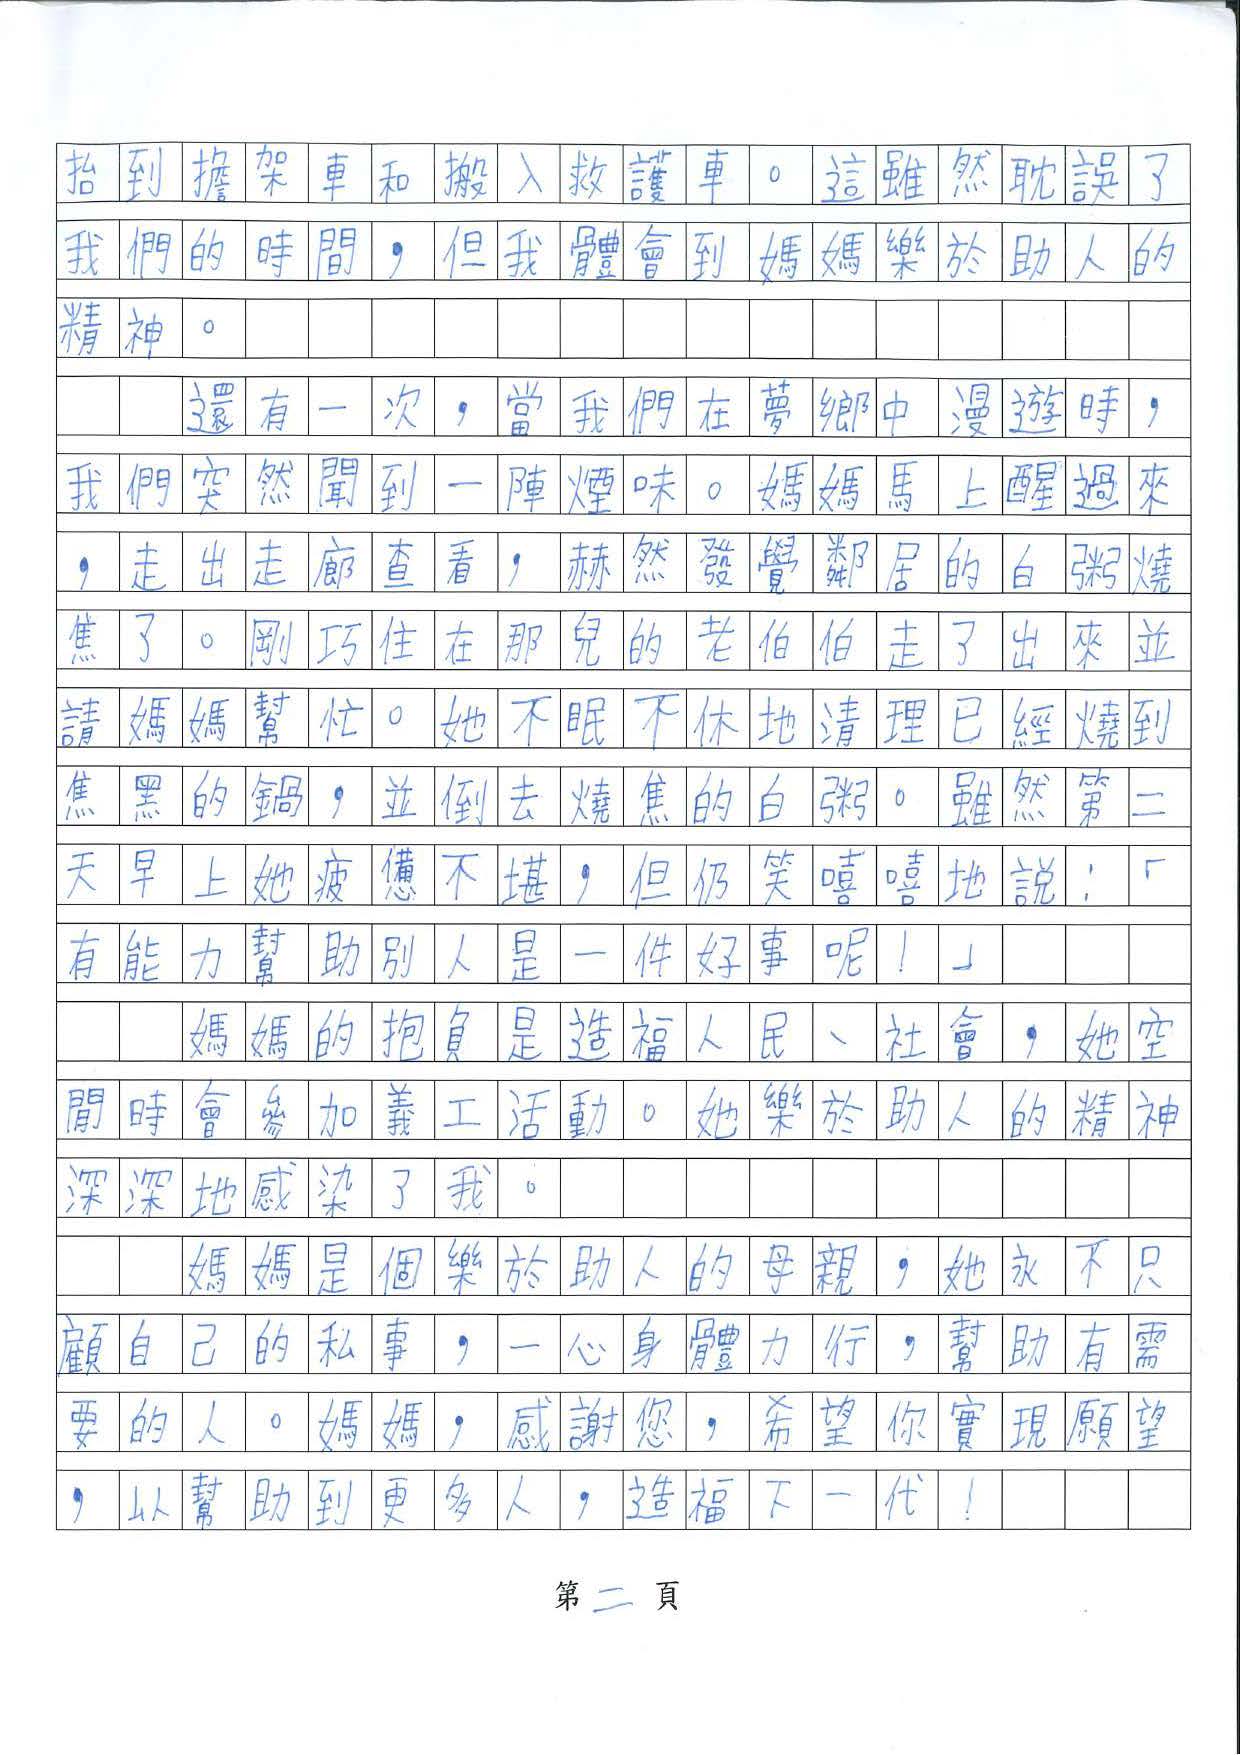 抬到擔架車和搬入救護車。這雖然耽誤了
我們的時間，但我體會到媽媽樂於助人的
精神。
還有一次，當我們在夢鄉中漫遊時，
我們突然聞到一陣煙味。媽媽馬上醒過來
，走出走廊查看，赫然發覺鄰居的白粥燒
焦了。剛巧住在那兒的老伯伯走了出來並
請媽媽幫忙。她不眠不休地清理已經燒到
焦黑的鍋，並倒去燒焦的白粥。雖然第二
天早上她疲憊不堪，但仍笑嘻嘻地說：「
有能力幫助別人是一件好事呢！」
媽媽的抱負是造福人民、社會，她空
閒時會參加義工活動。她樂於助人的精神
深深地感染了我。
媽媽是個樂於助人的母親，她永不只
顧自己的私事，一心身體力行，幫助有需
要的人。媽媽，感謝您，希望你實現願望
，以幫助到更多人，造福下一代！
第二頁